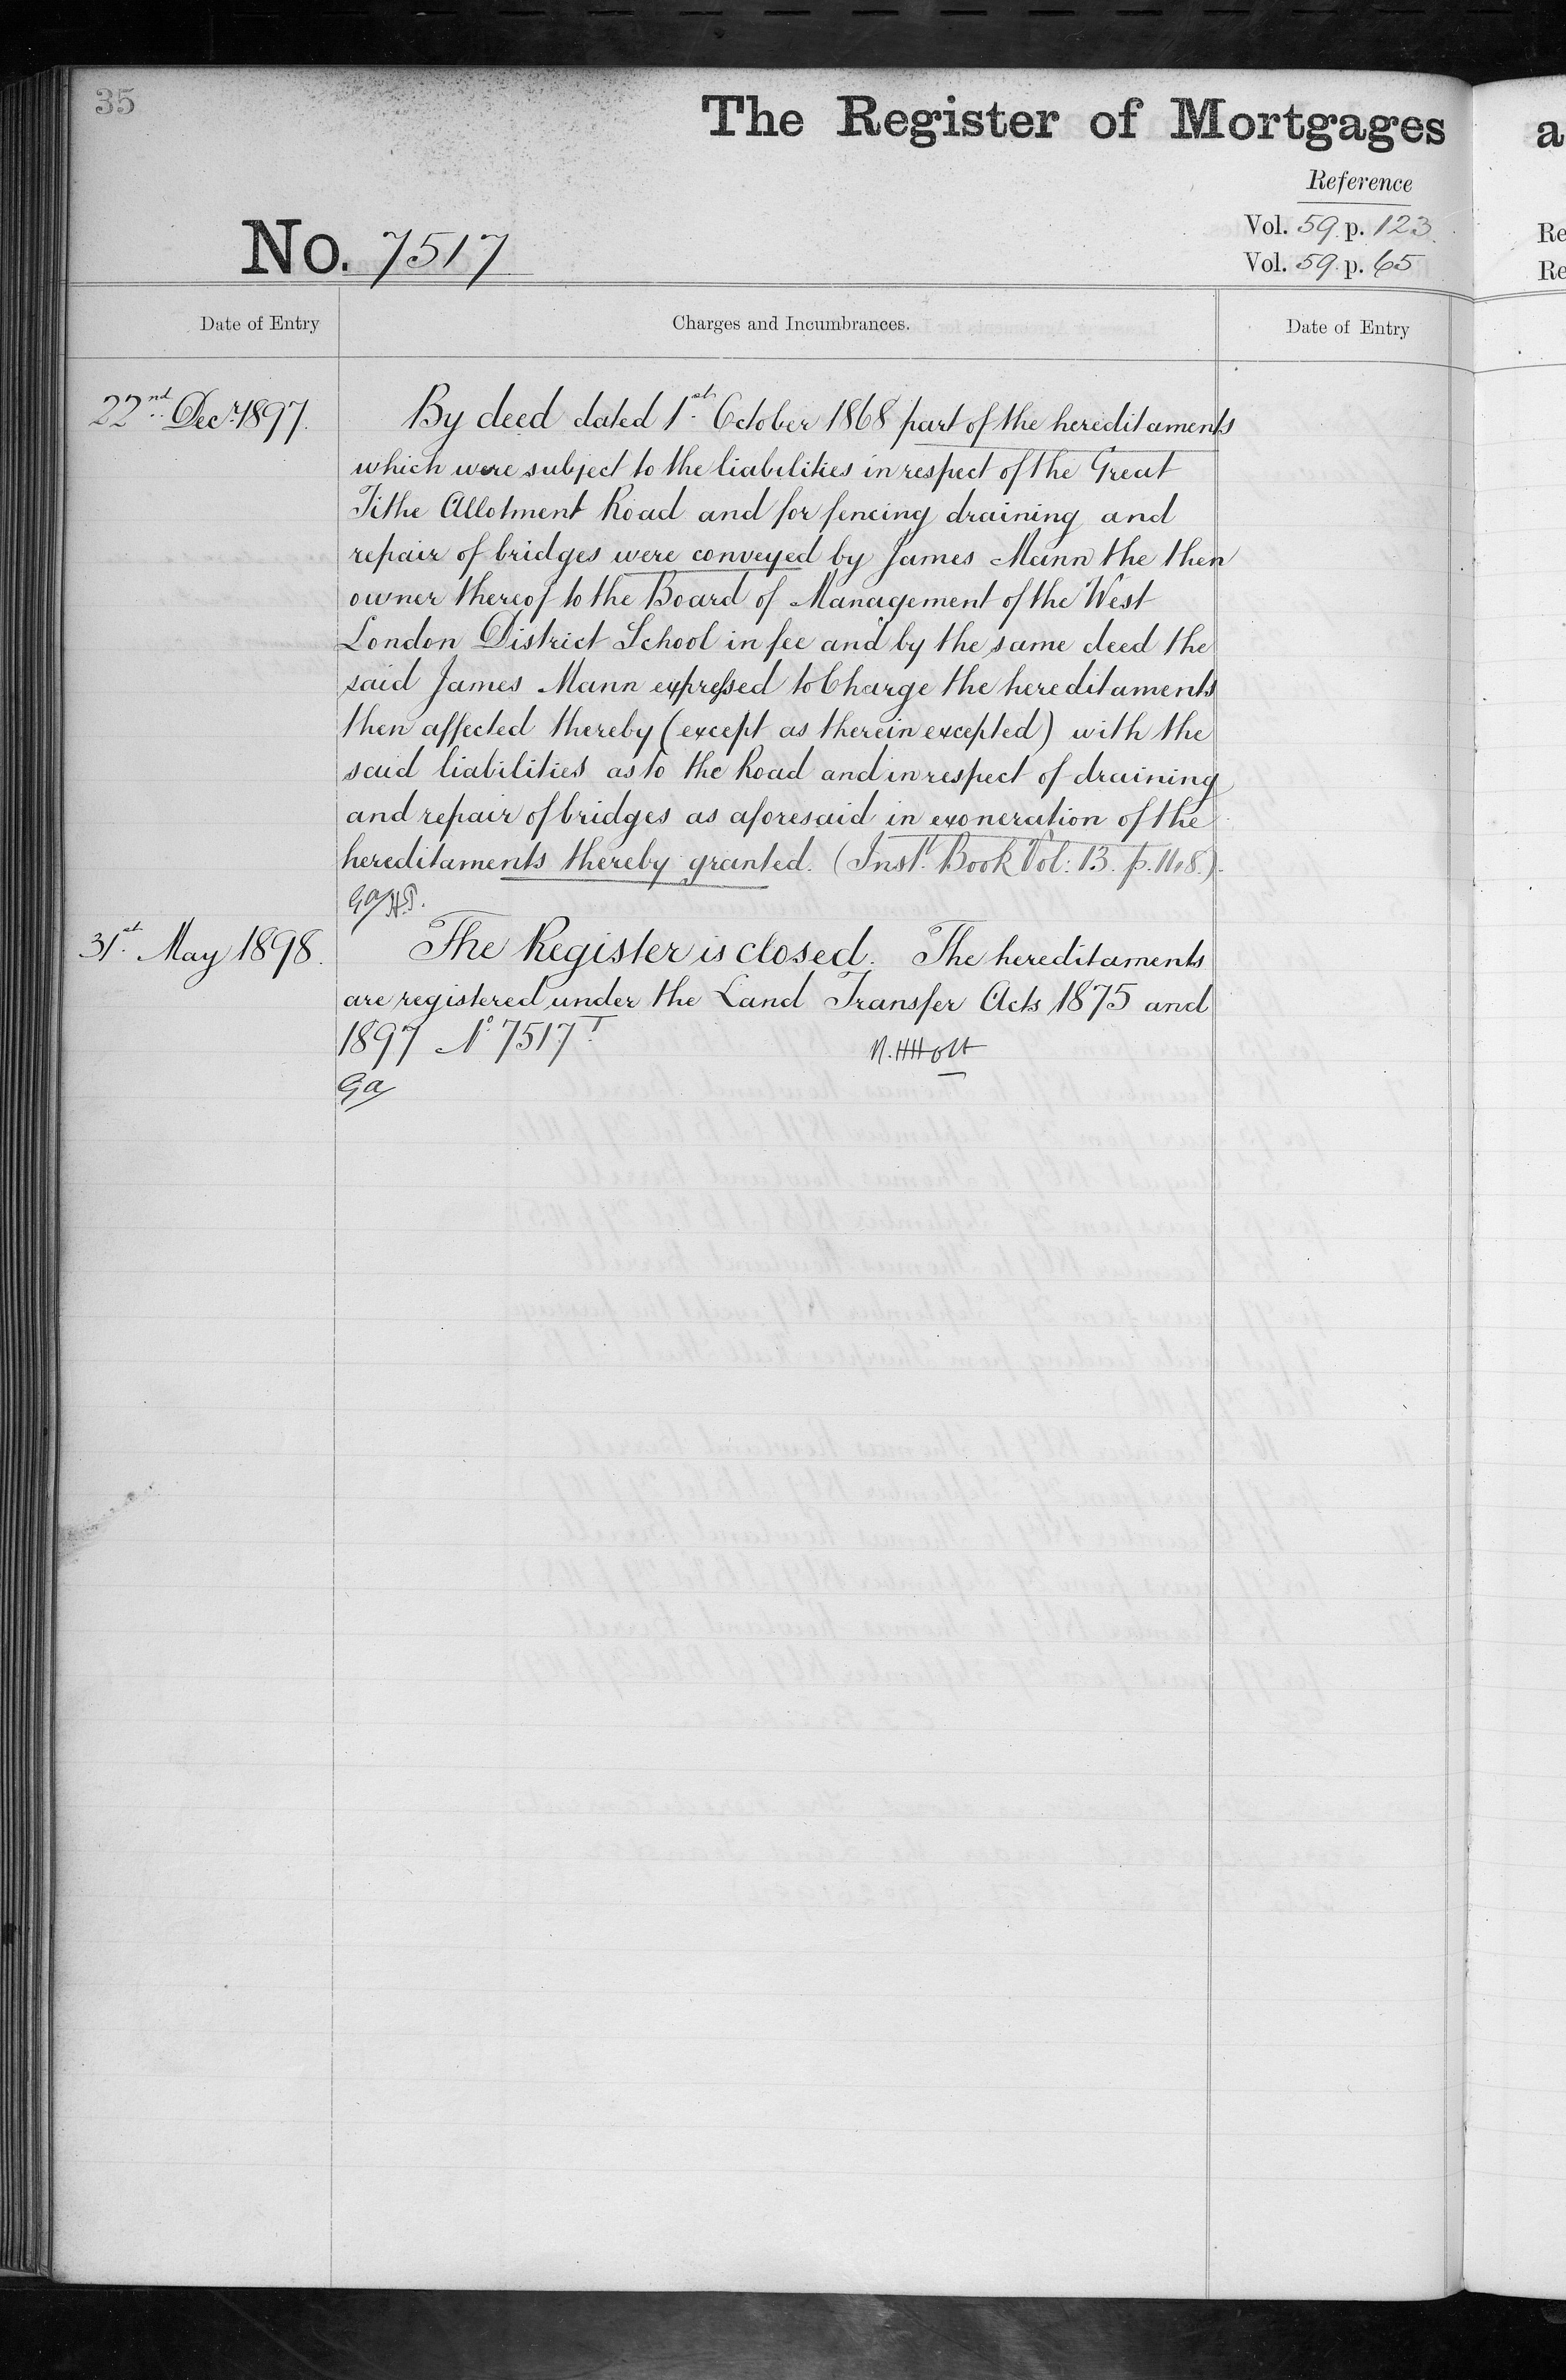 35
The Register of Mortgages
Reference
Vol. 59 p. 123
No. 7517
Vol. 59 p. 65
Date of Entry
Charges and Incumbrances.
Date of Entry
22nd Decr. 1897.
By deed dated 1st October 1868 part of the hereditaments
which were subject to the liabilities in respect of the Great
Tithe Allotment Road and for fencing draining and
repair of bridges were conveyed by James Mann the then
owner thereof to the Board of Management of the West
London District School in fee and by the same deed the
said James Mann expressed to Charge the hereditaments
then affected thereby (except as therein excepted) with the
said liabilities as to the Road and in respect of draining
and repair of bridges as aforesaid in exoneration of the
hereditaments thereby granted. (Inst. Book Vol: 13. p.
31st May 1898.
The Register is closed. The hereditaments
are registered under the Land Transfer Acts 1875 and
1897 No 7517 T
Holt
a
Re
Re